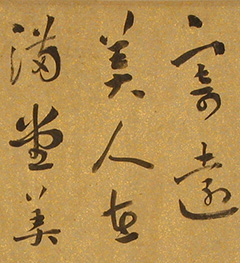 寄遠
美人在
滿堂美